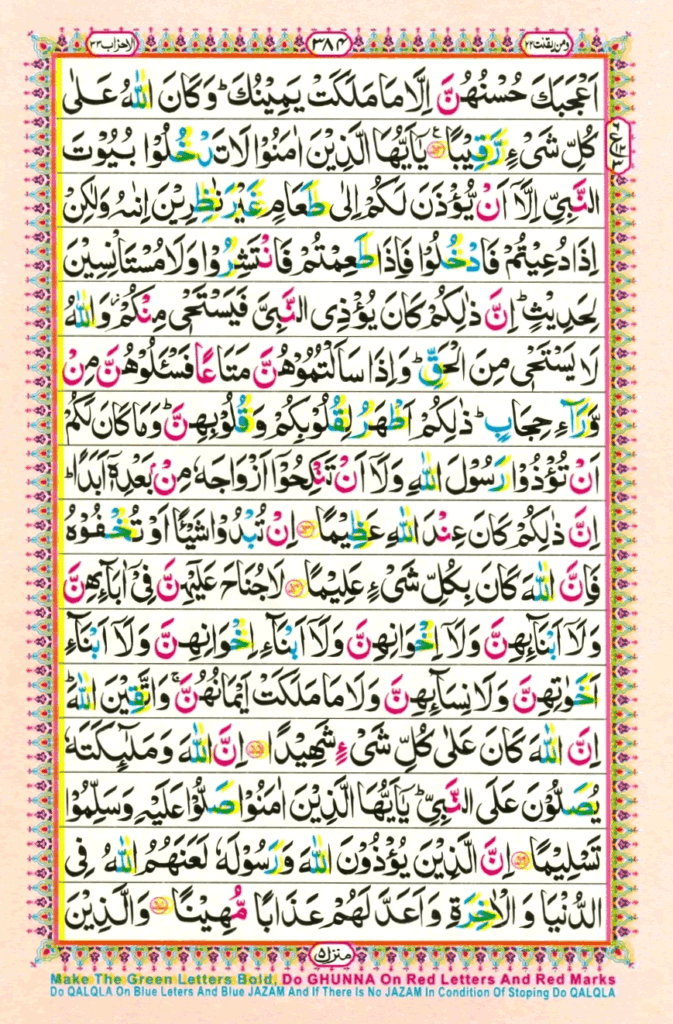 ومن يقنت ٢٢
٣٨٤
الاحزاب ٣٣
اَعْجَبَكَ حُسْنُهُنَّ اِلَّا مَا مَلَكَتْ يَمِيْنُكَ ؕ وَكَانَ اللّٰهُ عَلٰى
كُلِّ شَىْءٍ رَّقِيْبًا ۟ يٰۤاَيُّهَا الَّذِيْنَ اٰمَنُوْا لَا تَدْخُلُوْا بُيُوْتَ
النَّبِىِّ اِلَّاۤ اَنْ يُّؤْذَنَ لَكُمْ اِلٰى طَعَامٍ غَيْرَ نٰظِرِيْنَ اِنٰىهُ وَلٰكِنْ
اِذَا دُعِيْتُمْ فَادْخُلُوْا فَاِذَا طَعِمْتُمْ فَانْتَشِرُوْا وَلَا مُسْتَاْنِسِيْنَ
لِحَدِيْثٍ ؕ اِنَّ ذٰلِكُمْ كَانَ يُؤْذِى النَّبِىَّ فَيَسْتَحْىٖ مِنْكُمْ ؗ وَاللّٰهُ
لَا يَسْتَحْىٖ مِنَ الْحَقِّ ؕ وَاِذَا سَاَلْتُمُوْهُنَّ مَتَاعًا فَسْـَٔلُوْهُنَّ مِنْ
وَّرَآءِ حِجَابٍ ؕ ذٰلِكُمْ اَطْهَرُ لِقُلُوْبِكُمْ وَقُلُوْبِهِنَّ ؕ وَمَا كَانَ لَكُمْ
اَنْ تُؤْذُوْا رَسُوْلَ اللّٰهِ وَلَاۤ اَنْ تَنْكِحُوْۤا اَزْوَاجَهٗ مِنْۢ بَعْدِهٖۤ اَبَدًا ؕ
اِنَّ ذٰلِكُمْ كَانَ عِنْدَ اللّٰهِ عَظِيْمًا ۟ اِنْ تُبْدُوْا شَيْـًٔا اَوْ تُخْفُوْهُ
فَاِنَّ اللّٰهَ كَانَ بِكُلِّ شَىْءٍ عَلِيْمًا ۟ لَا جُنَاحَ عَلَيْهِنَّ فِىْۤ اٰبَآئِهِنَّ
وَلَاۤ اَبْنَآئِهِنَّ وَلَاۤ اِخْوَانِهِنَّ وَلَاۤ اَبْنَآءِ اِخْوَانِهِنَّ وَلَاۤ اَبْنَآءِ
اَخَوٰتِهِنَّ وَلَا نِسَآئِهِنَّ وَلَا مَا مَلَكَتْ اَيْمَانُهُنَّ ۚ وَاتَّقِيْنَ اللّٰهَ ؕ
اِنَّ اللّٰهَ كَانَ عَلٰى كُلِّ شَىْءٍ شَهِيْدًا ۟ اِنَّ اللّٰهَ وَمَلٰٓئِكَتَهٗ
يُصَلُّوْنَ عَلَى النَّبِىِّ ؕ يٰۤاَيُّهَا الَّذِيْنَ اٰمَنُوْا صَلُّوْا عَلَيْهِ وَسَلِّمُوْا
تَسْلِيْمًا ۟ اِنَّ الَّذِيْنَ يُؤْذُوْنَ اللّٰهَ وَرَسُوْلَهٗ لَعَنَهُمُ اللّٰهُ فِى
الدُّنْيَا وَالْاٰخِرَةِ وَاَعَدَّ لَهُمْ عَذَابًا مُّهِيْنًا ۟ وَالَّذِيْنَ
منزل ۵
Make The Green Letters Bold, Do GHUNNA On Red Letters And Red Marks
Do QALQLA On Blue Leters And Blue JAZAM And If There Is No JAZAM In Condition Of Stoping Do QALQLA